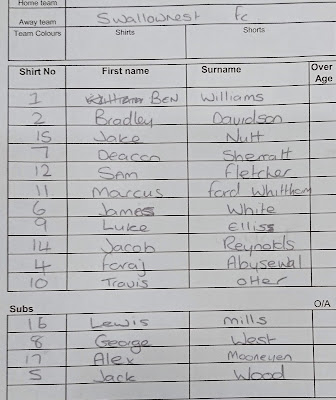 Home team
Away team Swallownest fc
Team Colours Shirts Shorts
Shirt No First name Surname Over Age
1 BEN Williams
2 Bradley Davidson
15 Jake Nutt
7 Deacon Sherratt
12 SAM Fletcher
11 Marcus ford Whittham
6 James White
9 Luke Elliss
14 Jacob Reynolds
4 faraj Abusewal
10 Travis otter
Subs O/A
16 Lewis mills
8 George West
17 Alex
5 Jack Wood